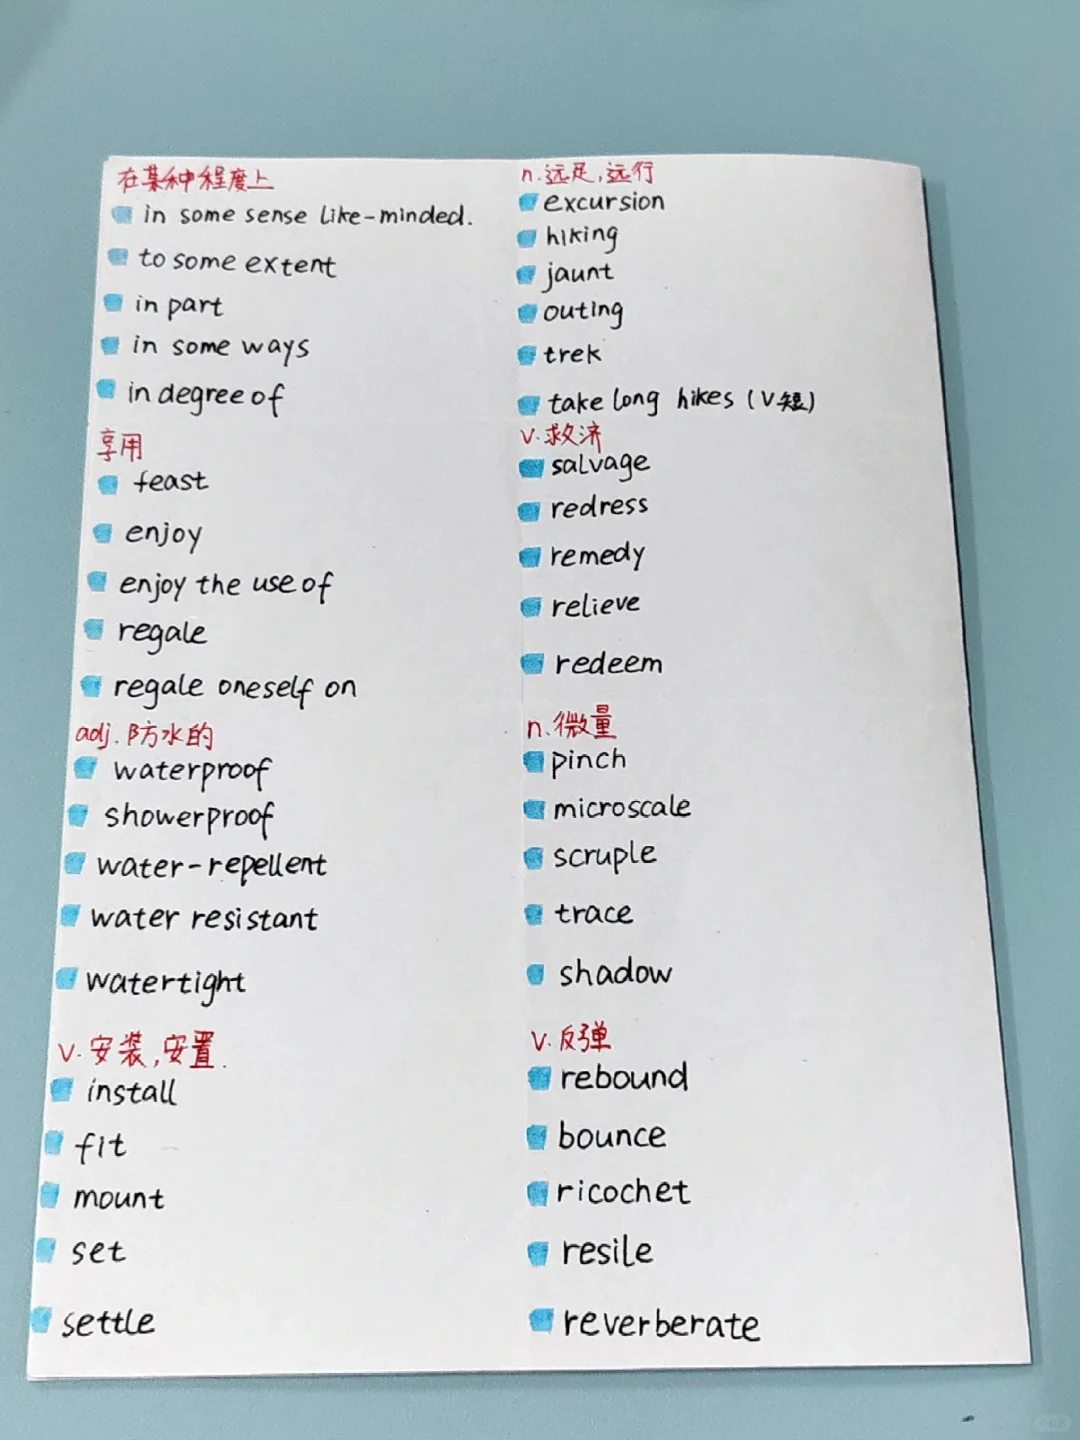 在某种程度上
in some sense like-minded.
to some extent
in part
in some ways
in degree of
享用
feast
enjoy
enjoy the use of
regale
regale oneself on
adj. 防水的
waterproof
showerproof
water-repellent
water resistant
watertight
v. 安装,安置.
install
fit
mount
set
settle
n. 远足,远行
excursion
hiking
jaunt
outing
trek
take long hikes (v短)
v. 救济
salvage
redress
remedy
relieve
redeem
n. 微量
pinch
microscale
scruple
trace
shadow
v. 反弹
rebound
bounce
ricochet
resile
reverberate